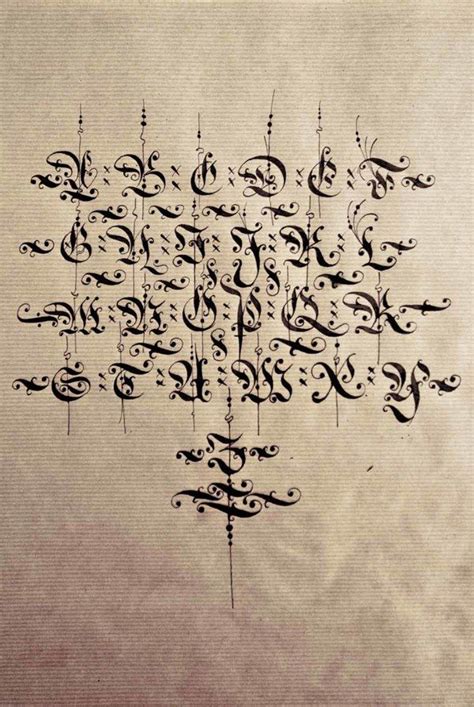 A B C D E F
G H I J K L
M N O P Q R
S T U W X Y
Z